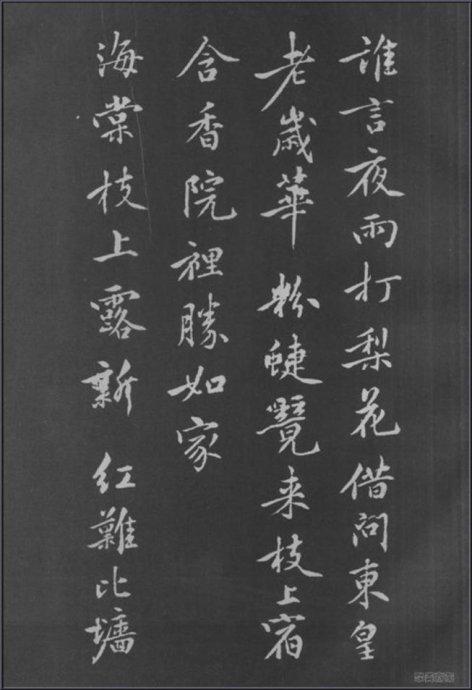 誰言夜雨打梨花借問東皇
老歲華 粉蜨覺來枝上宿
含香院裡勝如家
海棠枝上露新 紅難比墻